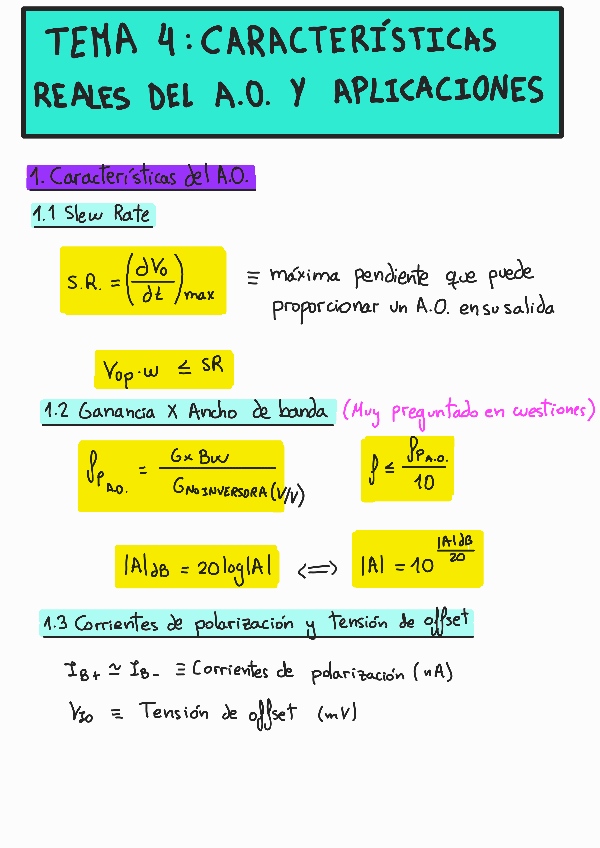 TEMA 4: CARACTERÍSTICAS
REALES DEL A.O. Y APLICACIONES
1. Características del A.O.
1.1 Slew Rate
S.R. = (dVo/dt)max ≡ máxima pendiente que puede
proporcionar un A.O. en su salida
Vop·w ≤ SR
1.2 Ganancia X Ancho de banda (Muy preguntado en cuestiones)
fP A.O. = G x BW / G NO INVERSORA (V/V)
f ≤ fP A.O. / 10
|A|dB = 20log|A| <=> |A| = 10^(|A|dB/20)
1.3 Corrientes de polarización y tensión de offset
IB+ ≃ IB- ≡ Corrientes de polarización (nA)
VIO ≡ Tensión de offset (mV)